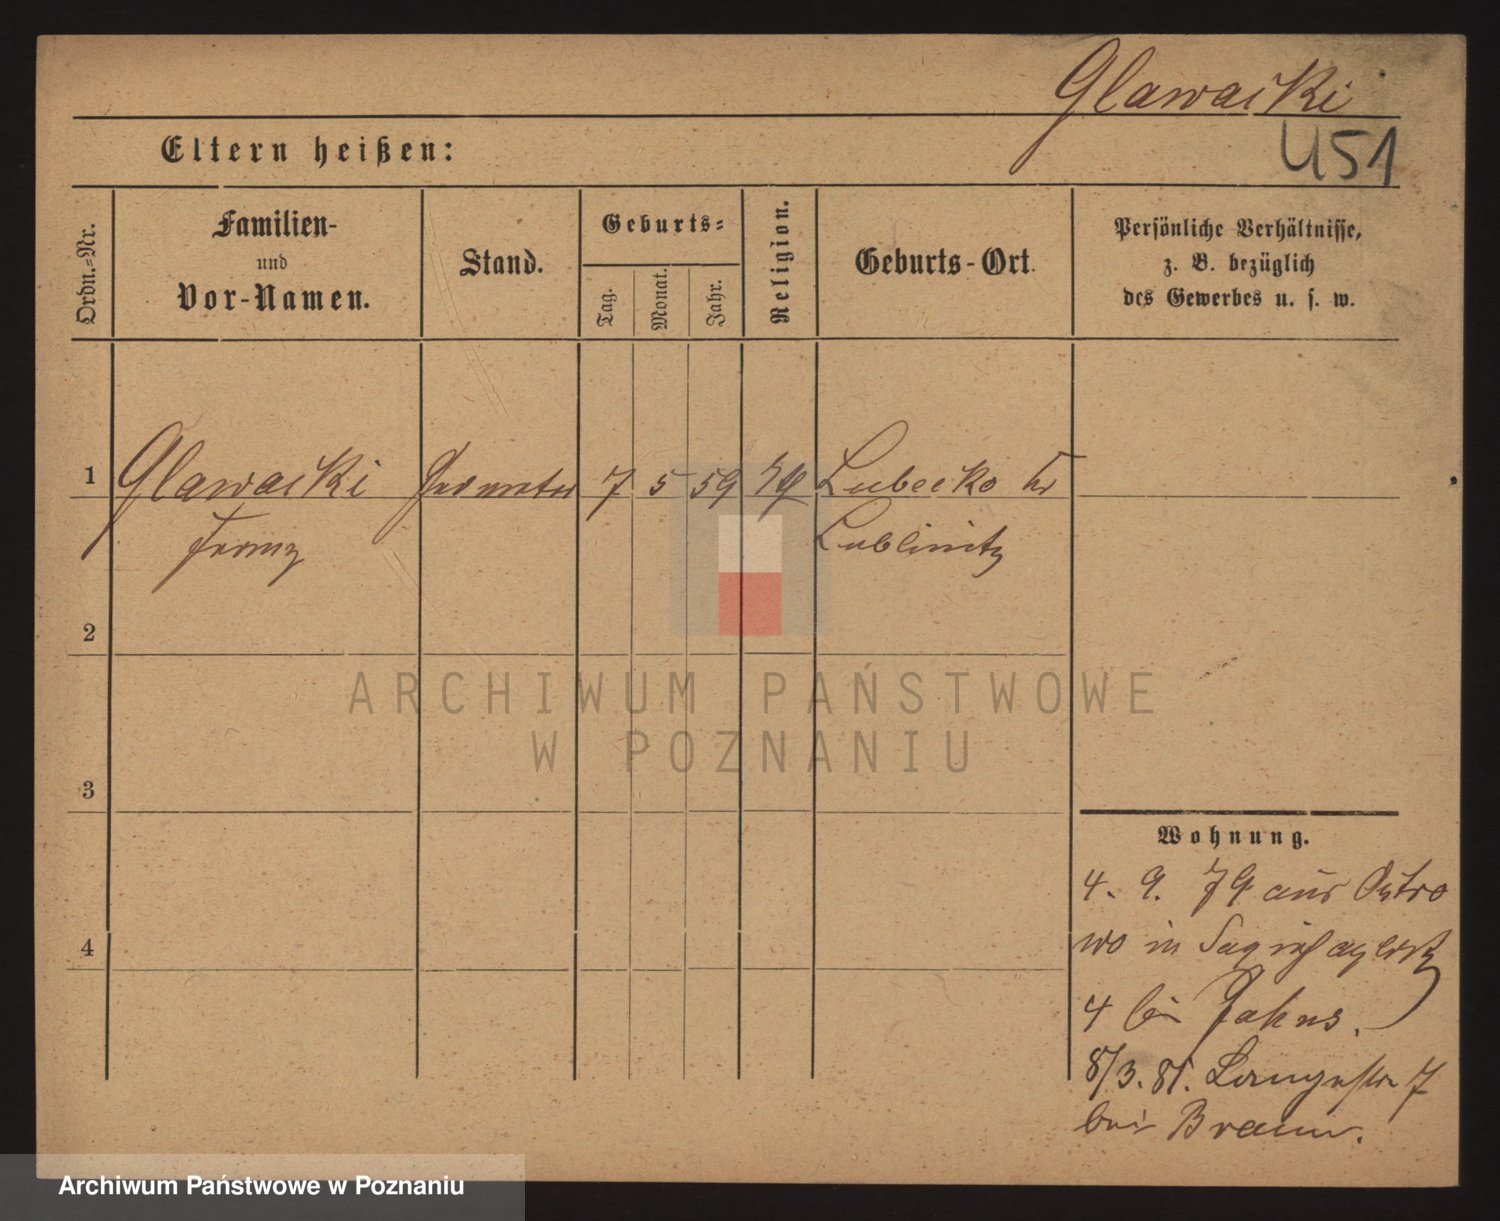 Glawacki
U51
Eltern heißen:
Ordn.-Nr.
Familien-
und
Vor-Namen.
Stand.
Geburts-
Tag.
Monat.
Jahr.
Religion.
Geburts-Ort.
Persönliche Verhältnisse,
z. B. bezüglich
des Gewerbes u. s. w.
1
Glawacki 7 5 59 Lubecko
Franz Lublinitz
2
ARCHIWUM PAŃSTWOWE
W POZNANIU
3
4
Wohnung.
4. 9. 79 aus Ostro
wo in
4 bei Jahns.
8/3. 81. Langestr 7
bei Braun.
Archiwum Państwowe w Poznaniu